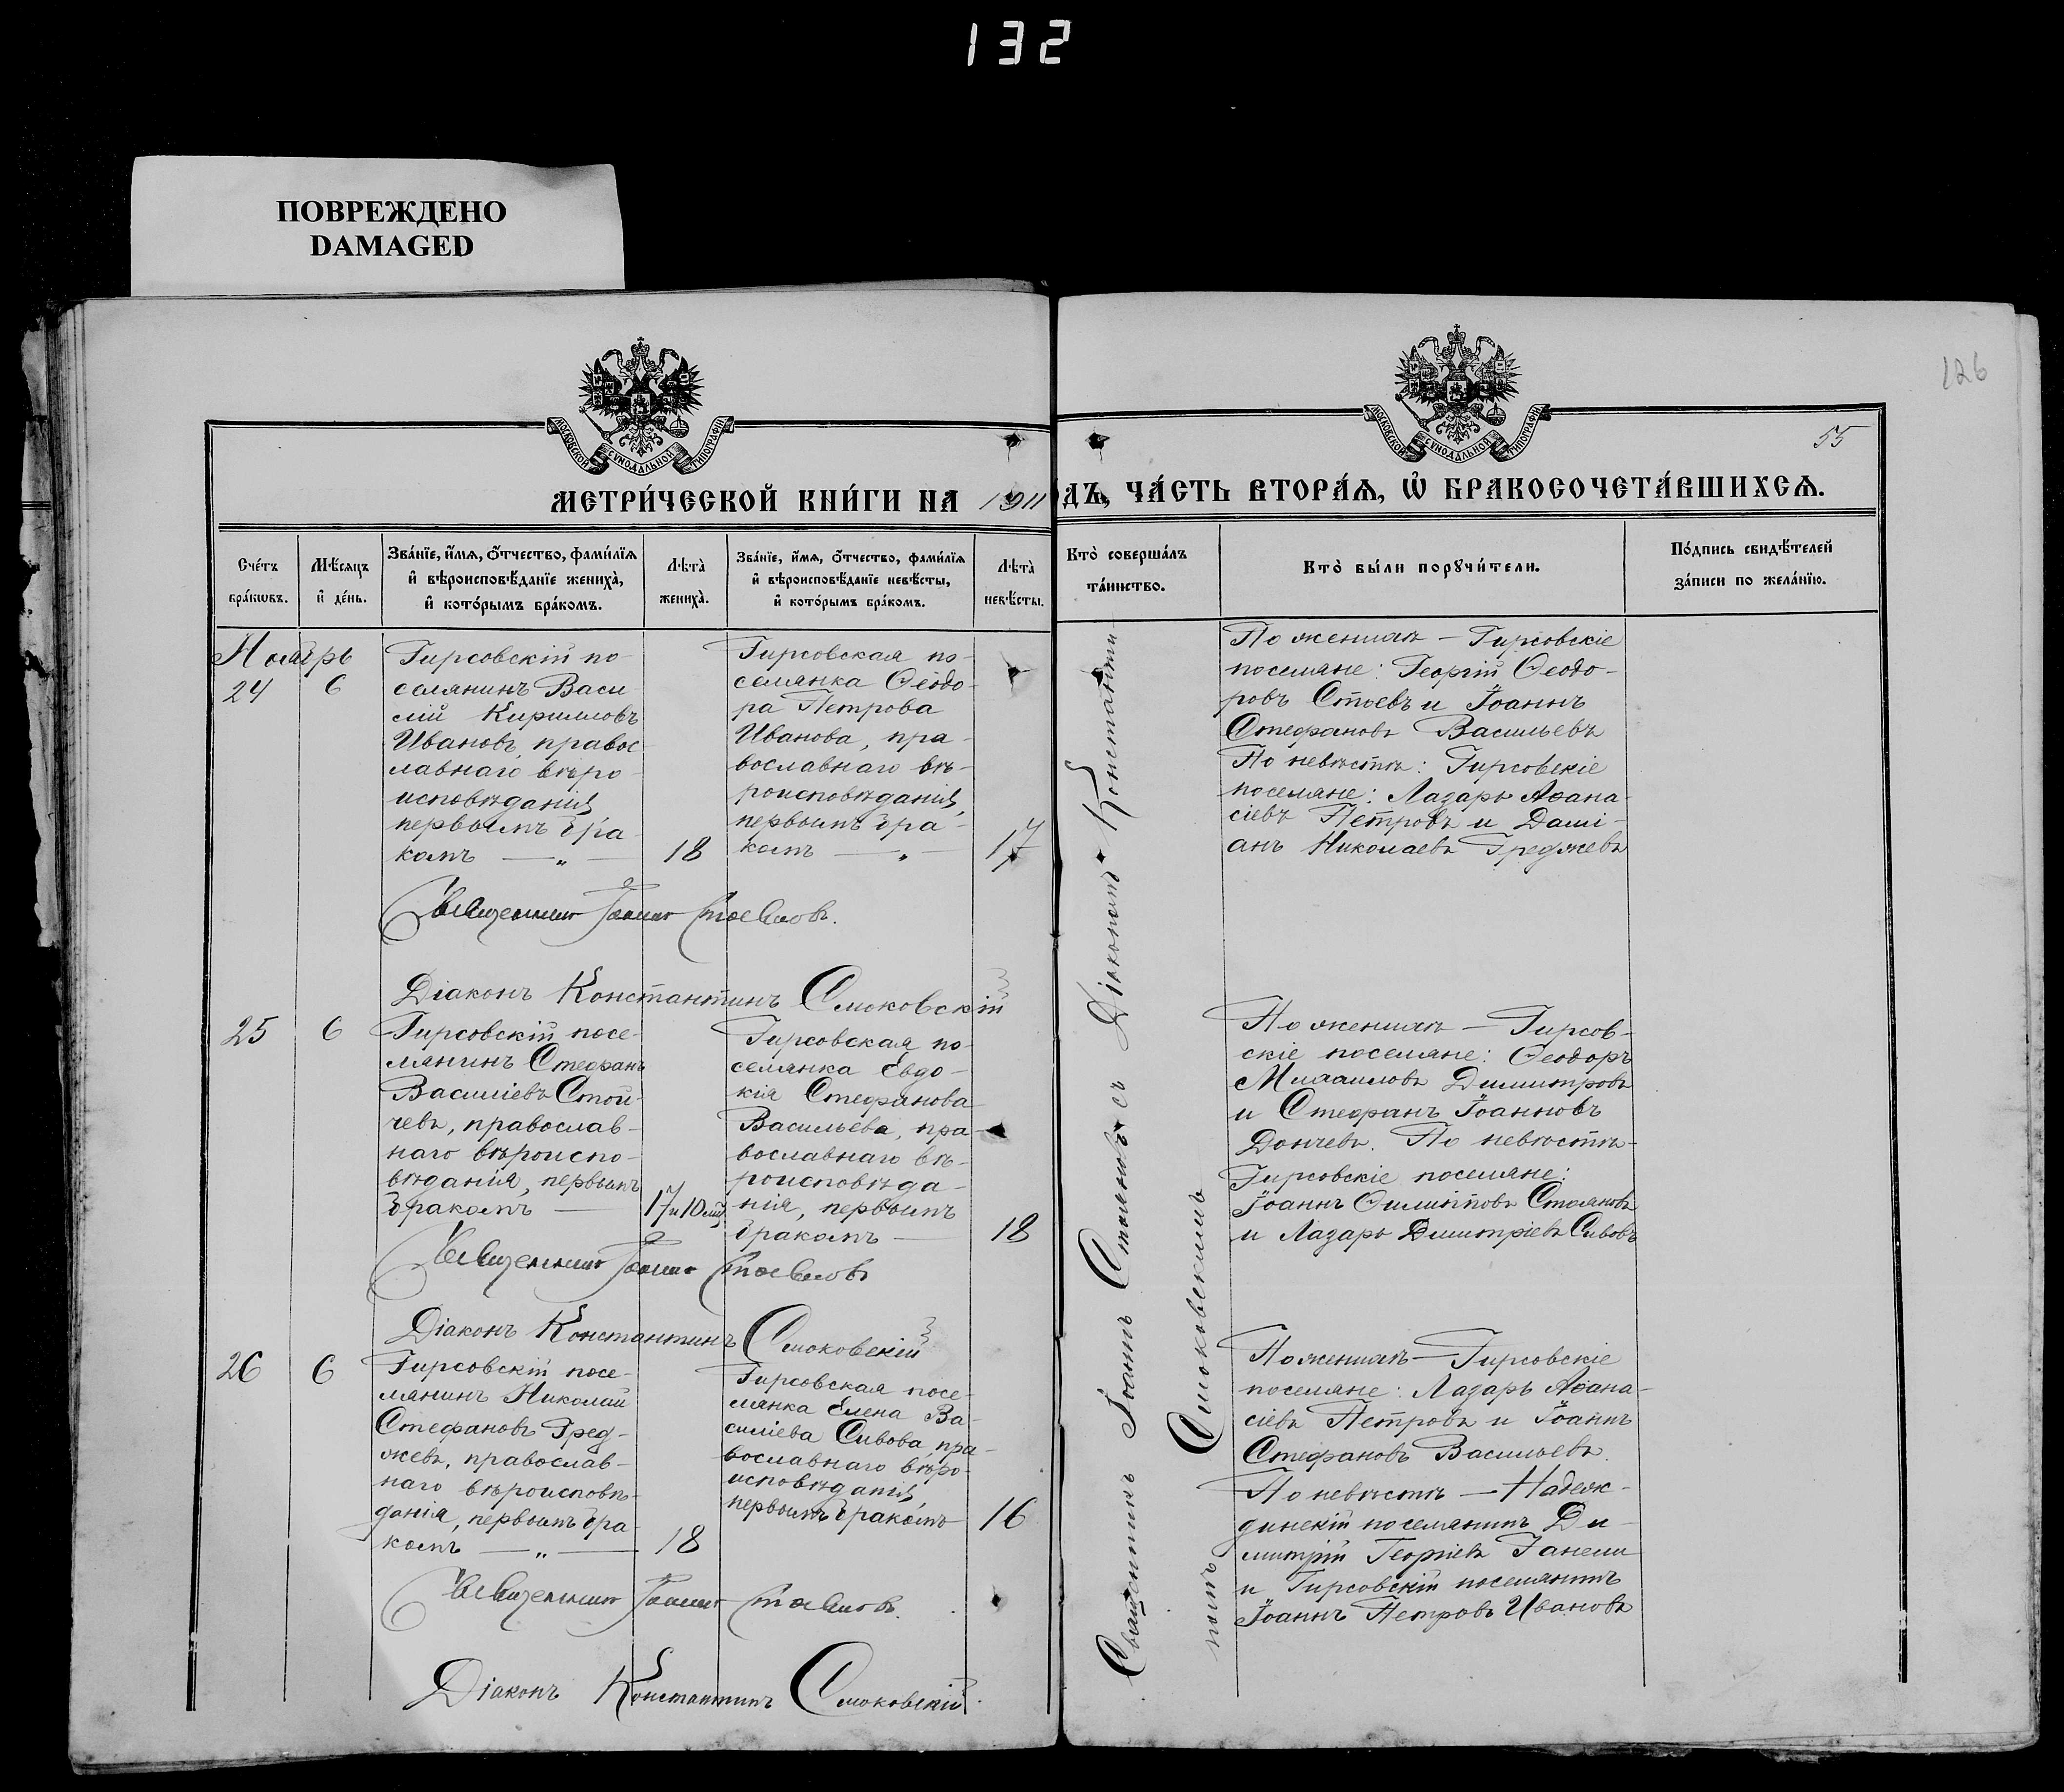 132
ПОВРЕЖДЕНО
DAMAGED
126
55
МОСКОВСКОЙ СѴНОДАЛЬНОЙ ТИПОГРАФІИ
МОСКОВСКОЙ СѴНОДАЛЬНОЙ ТИПОГРАФІИ
МЕТРИ́ЧЕСКОЙ КНИ́ГИ НА 1911
ДЪ, ЧА́СТЬ ВТОРА́Ѧ, Ѽ БРАКОСОЧЕТА́ВШИХСѦ.
Сче́тъ
бра́кѡвъ.
Мѣ́сѧцъ
и҆ де́нь.
Зва́нїе, и҆́мѧ, ѻ҆́тчество, фами́лїѧ
и҆ вѣроисповѣ́данїе жениха̀,
и҆ кото́рымъ бра́комъ.
Лѣ́та̀
жениха̀.
Зва́нїе, и҆́мѧ, ѻ҆́тчество, фами́лїѧ
и҆ вѣроисповѣ́данїе невѣ́сты,
и҆ кото́рымъ бра́комъ.
Лѣ́та̀
невѣ́сты.
Кто̀ соверша́лъ
та́инство.
Кто̀ бы́ли порꙋчи́тели.
По́дпись свидѣ́телей
за́писи по жела́нїю.
Ноябрь
24
6
Гирсовскій по-
селянинъ Васи
лій Кирилловъ
Ивановъ, правос
лавнаго вѣро-
исповѣданія,
первымъ бра-
комъ — „ —
18
Гирсовская по-
селянка Ѳеодо-
ра Петрова
Иванова, пра-
вославнаго вѣ-
роисповѣданія,
первымъ бра-
комъ — „ —
17
По женихѣ — Гирсовскіе
поселяне: Георгій Ѳеодо-
ровъ Стоевъ и Іоаннъ
Стефановъ Васильевъ
По невѣстѣ: Гирсовскіе
поселяне: Лазарь Аѳана-
сіевъ Петровъ и Дамі-
анъ Николаевъ Греджевъ
Священникъ Іоаннъ Стояновъ.
Діаконъ Константинъ Смоковскій
25
6
Гирсовскій посе-
лянинъ Стефанъ
Василіевъ Стой-
чевъ, православ-
наго вѣроиспо-
вѣданія, первымъ
бракомъ —
17 и 10 мѣс.
Гирсовская по-
селянка Евдо-
кія Стефанова
Васильева, пра-
вославнаго вѣ-
роисповѣда-
нія, первымъ
бракомъ —
18
По женихѣ — Гирсов-
скіе поселяне: Ѳеодоръ
Михаиловъ Димитровъ
и Стефанъ Іоанновъ
Дончевъ. По невѣстѣ-
Гирсовскіе поселяне:
Іоаннъ Филипповъ Стояновъ
и Лазарь Димитріевъ Сивовъ
Священникъ Іоаннъ Стояновъ
Діаконъ Константинъ Смоковскій
26
6
Гирсовскій посе-
лянинъ Николай
Стефановъ Гред-
жевъ, православ-
наго вѣроисповѣ-
данія, первымъ бра-
комъ — „ —
18
Гирсовская посе-
лянка Елена Ва-
силіева Сивова, пра-
вославнаго вѣро-
исповѣданія,
первымъ бракомъ
16
По женихѣ — Гирсовскіе
поселяне: Лазарь Аѳана-
сіевъ Петровъ и Іоаннъ
Стефановъ Васильевъ.
По невѣстѣ — Надеж-
динскій поселянинъ Ди-
митрій Георгіевъ Ганели
и Гирсовскій поселянинъ
Іоаннъ Петровъ Ивановъ
Священникъ Іоаннъ Стояновъ.
Діаконъ Константинъ Смоковскій.
Священникъ Іоаннъ Стояновъ съ Діакономъ Константи-
номъ Смоковскимъ